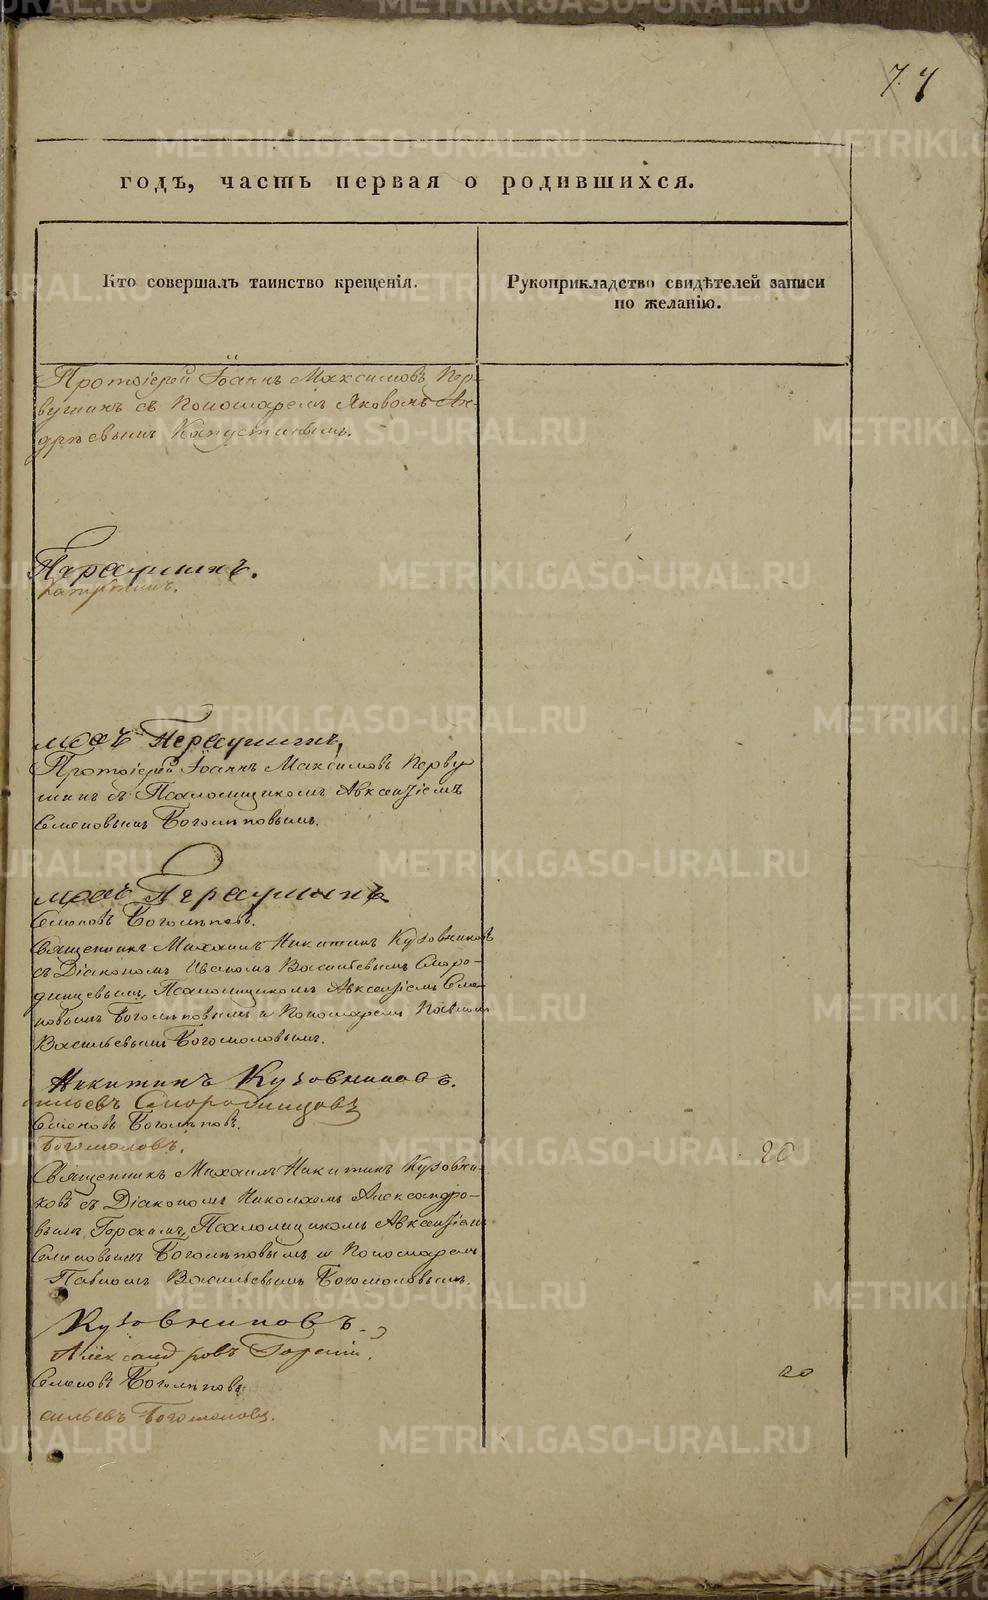 7.
годъ, часть первая о родившихся.
Кто совершалъ таинство крещенія.
Рукоприкладство свидѣтелей записи
по желанію.
Протоіерей Іоаннъ Максимовъ Пер-
вушинъ съ Пономаремъ Яковомъ Ан-
дреевымъ Капустинымъ.
Первушинъ.
Первушинъ,
Протоіерей Іоаннъ Максимовъ Перву
шинъ съ Псаломщикомъ Авксентіемъ
Семеновымъ Боголѣповымъ.
Первушинъ
Семеновъ Боголѣповъ.
Священникъ Михаилъ Никитинъ Кузовниковъ
съ Діакономъ Иваномъ Васильевымъ Сморо-
динцевымъ, Псаломщикомъ Авксентіемъ Семе-
новымъ Боголѣповымъ и Пономаремъ Павломъ
Васильевымъ Богомоловымъ.
Никитинъ Кузовниковъ.
сильевъ Смородинцовъ
Семеновъ Боголѣповъ.
Богомоловъ.
20
Священникъ Михаилъ Никитинъ Кузовни-
ковъ съ Діакономъ Николаемъ Александро-
вымъ Горскимъ, Псаломщикомъ Авксентіемъ
Семеновымъ Боголѣповымъ и Пономаремъ
Павломъ Васильевымъ Богомоловымъ.
Кузовниковъ.
Александровъ Горскій.
20
Семеновъ Боголѣповъ
сильевъ Богомоловъ.
METRIKI.GASO-URAL.RU